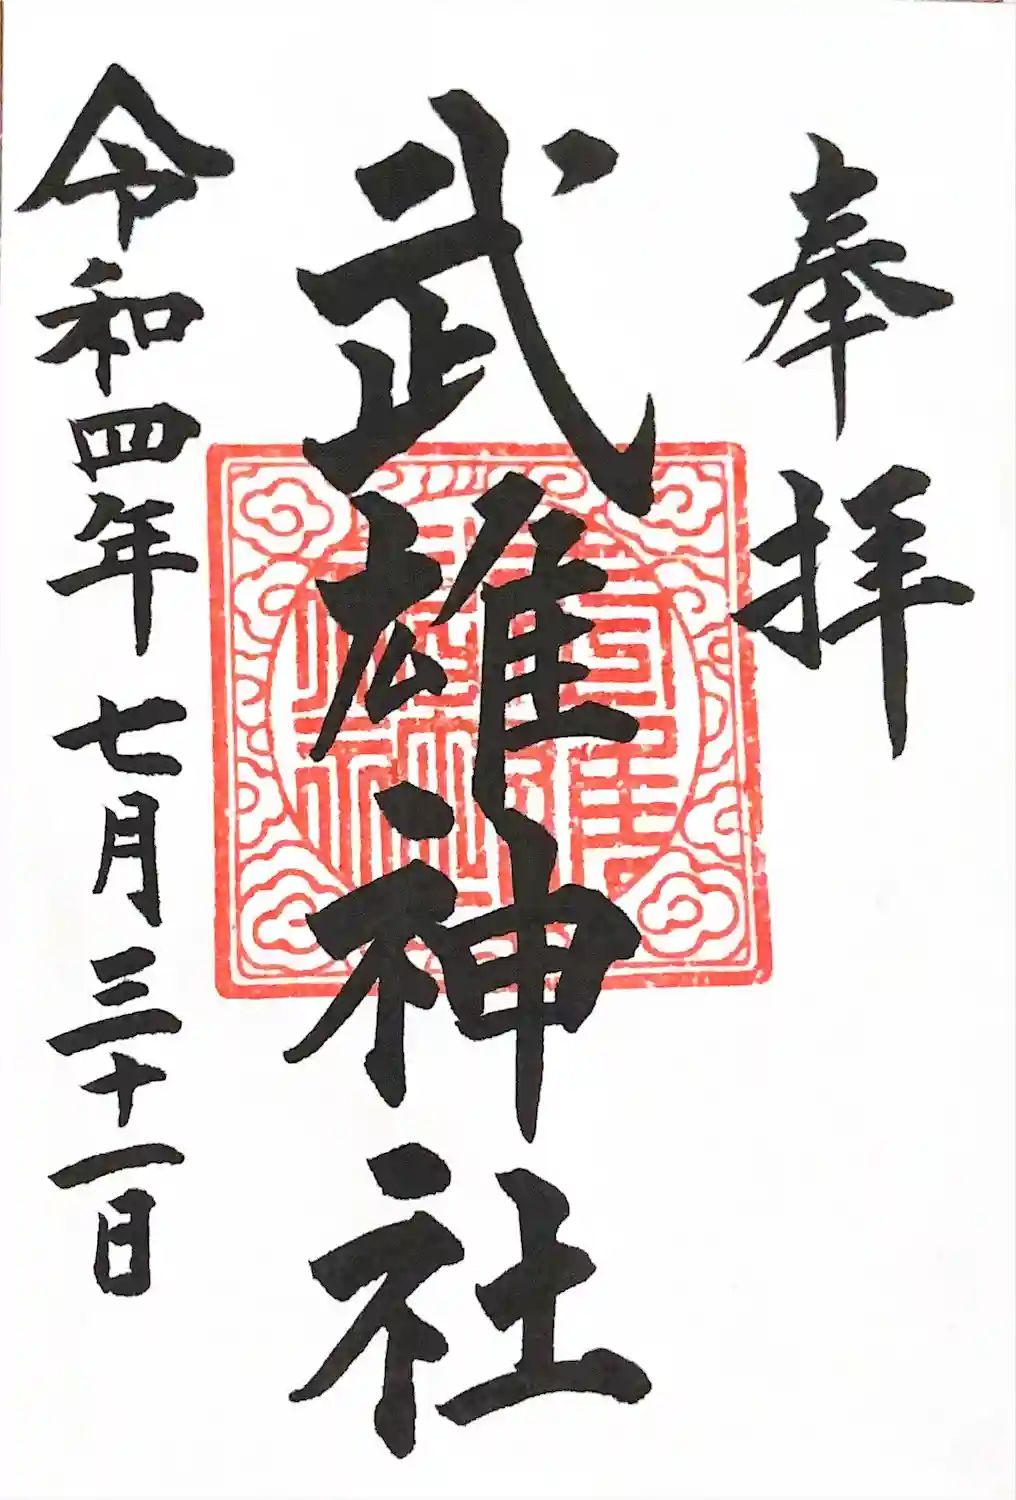 奉拝
武雄神社
令和四年 七月三十一日